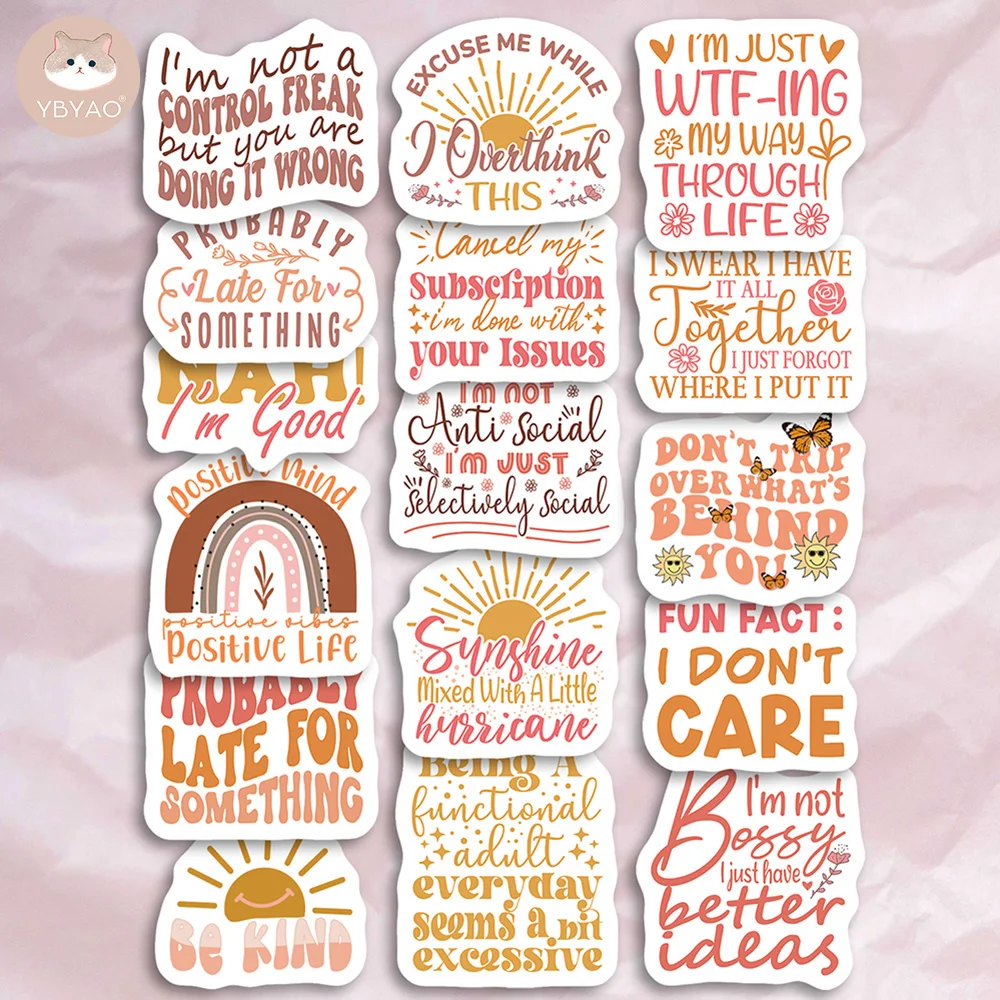 YBYAO®
I'm not a
CONTROL FREAK
but you are
DOING IT WRONG
PROBABLY
Late For
SOMETHING
NAH!
I'm Good
positive mind
positive vibes
Positive Life
PROBABLY
LATE FOR
SOMETHING
BE KIND
EXCUSE ME WHILE
I Overthink
THIS
Cancel my
Subscription
i'm done with
your Issues
I'M NOT
Anti Social
I'M JUST
Selectively Social
Sunshine
Mixed With A Little
hurricane
Being A
functional
adult
everyday
seems a bit
excessive
I'M JUST
WTF-ING
MY WAY
THROUGH
LIFE
I SWEAR I HAVE
IT ALL
Together
I JUST FORGOT
WHERE I PUT IT
DON'T TRIP
OVER WHAT'S
BEHIND
YOU
FUN FACT:
I DON'T
CARE
I'm not
Bossy
I just have
better
ideas